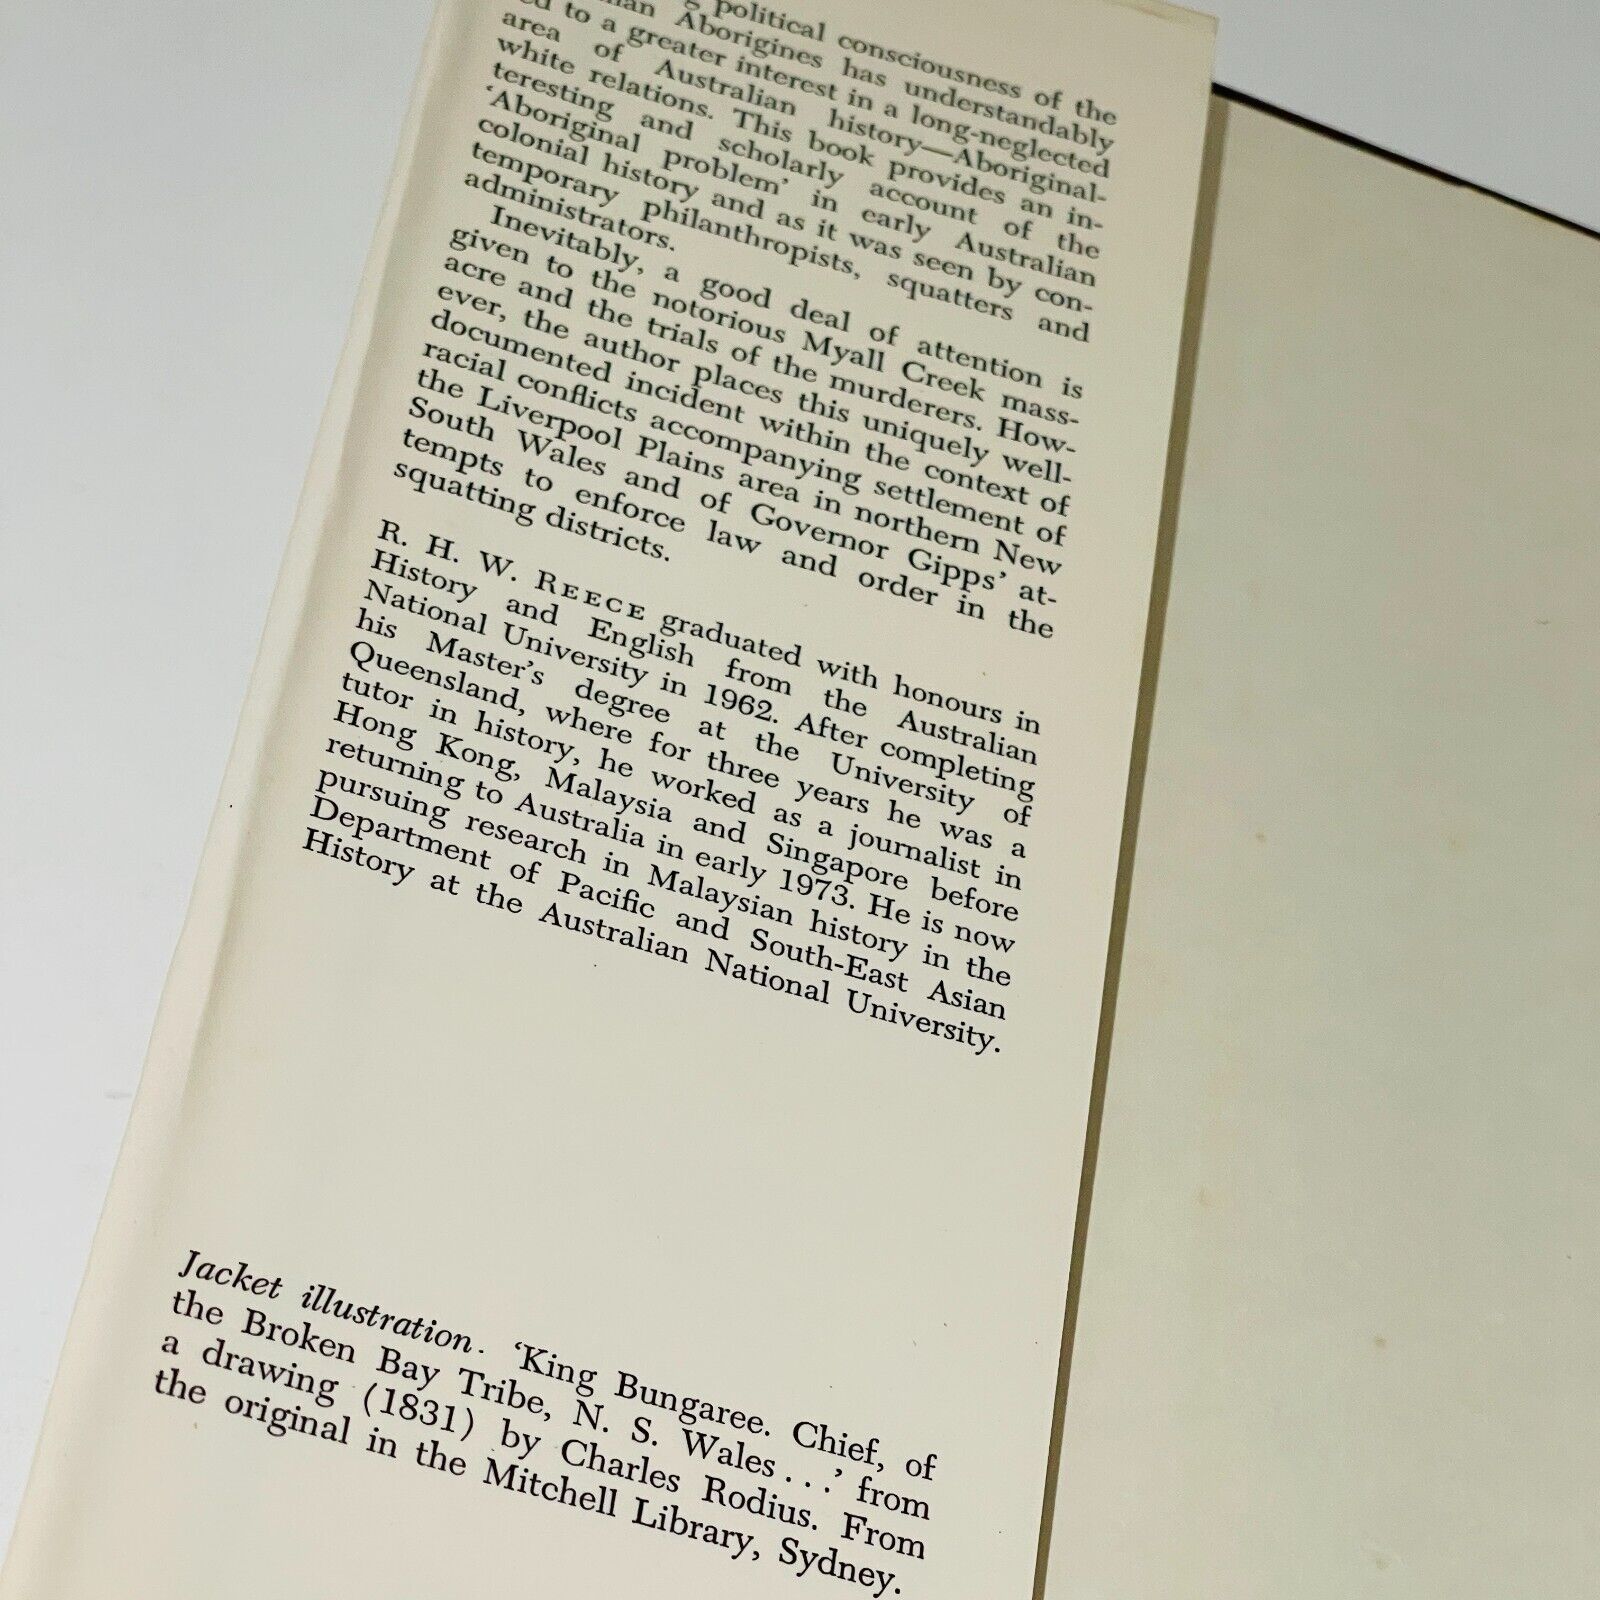 political consciousness of the
Aborigines has understandably
to a greater interest in a long-neglected
area of Australian history—Aboriginal-
white relations. This book provides an in-
teresting and scholarly account of the
‘Aboriginal problem’ in early Australian
colonial history and as it was seen by con-
temporary philanthropists, squatters and
administrators.
Inevitably, a good deal of attention is
given to the notorious Myall Creek mass-
acre and the trials of the murderers. How-
ever, the author places this uniquely well-
documented incident within the context of
racial conflicts accompanying settlement of
the Liverpool Plains area in northern New
South Wales and of Governor Gipps’ at-
tempts to enforce law and order in the
squatting districts.
R. H. W. REECE graduated with honours in
History and English from the Australian
National University in 1962. After completing
his Master’s degree at the University of
Queensland, where for three years he was a
tutor in history, he worked as a journalist in
Hong Kong, Malaysia and Singapore before
returning to Australia in early 1973. He is now
pursuing research in Malaysian history in the
Department of Pacific and South-East Asian
History at the Australian National University.
Jacket illustration. ‘King Bungaree. Chief, of
the Broken Bay Tribe, N. S. Wales . . .’ from
a drawing (1831) by Charles Rodius. From
the original in the Mitchell Library, Sydney.